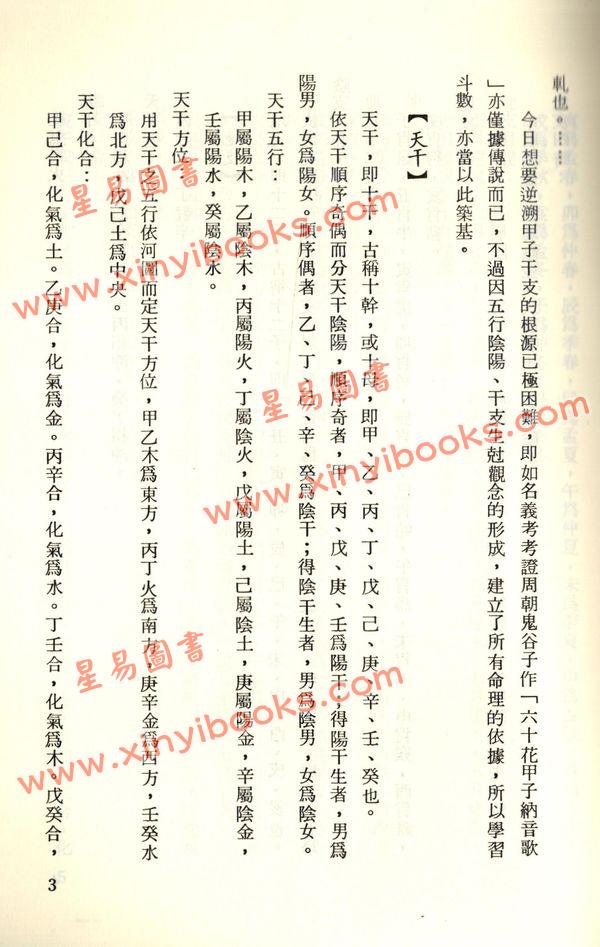 軋也。……
今日想要逆溯甲子干支的根源已極困難，即如名義考考證周朝鬼谷子作「六十花甲子納音歌
」亦僅據傳說而已，不過因五行陰陽、干支生尅觀念的形成，建立了所有命理的依據，所以學習
斗數，亦當以此築基。
【天干】
天干，即十干，古稱十幹，或十母，即甲、乙、丙、丁、戊、己、庚、辛、壬、癸也。
依天干順序奇偶而分天干陰陽，順序奇者，甲、丙、戊、庚、壬爲陽干；得陽干生者，男爲
陽男，女爲陽女。順序偶者，乙、丁、己、辛、癸爲陰干；得陰干生者，男爲陰男，女爲陰女。
天干五行：
甲屬陽木，乙屬陰木，丙屬陽火，丁屬陰火，戊屬陽土，己屬陰土，庚屬陽金，辛屬陰金，
壬屬陽水，癸屬陰水。
天干方位
用天干之五行依河圖而定天干方位，甲乙木爲東方，丙丁火爲南方，庚辛金爲西方，壬癸水
爲北方，戊己土爲中央。
天干化合：
甲己合，化氣爲土。乙庚合，化氣爲金。丙辛合，化氣爲水。丁壬合，化氣爲木。戊癸合，
3
星易圖書
www.xinyibooks.com
星易圖書
www.xinyibooks.com
星易圖書
www.xinyibooks.com